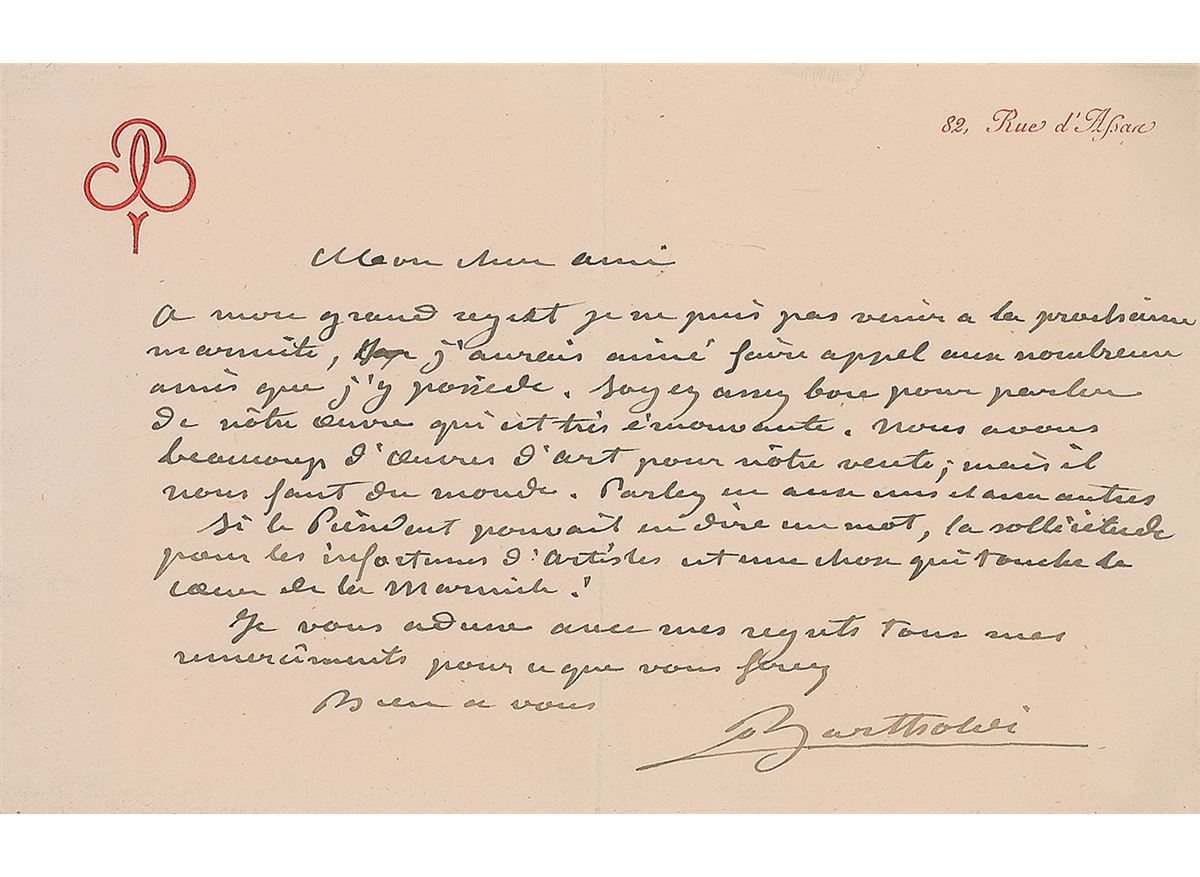 82, Rue d'Assas
Mon cher ami
A mon grand regret je ne puis pas venir a la prochaine
marmite, j'aurais aimé faire appel aux nombreux
amis que j'y possede. Soyez assez bon pour parler
de nôtre œuvre qui est très émouvante. Nous avons
beaucoup d'œuvres d'art pour nôtre vente; mais il
nous faut du monde. Parlez en aux uns et aux autres
Si le Président pouvait en dire un mot, la sollicitude
pour les infortunes d'artistes est une chose qui touche le
cœur de la Marmite!
Je vous adresse avec mes regrets tous mes
remerciments pour ce que vous ferez
Bien a vous
Bartholdi